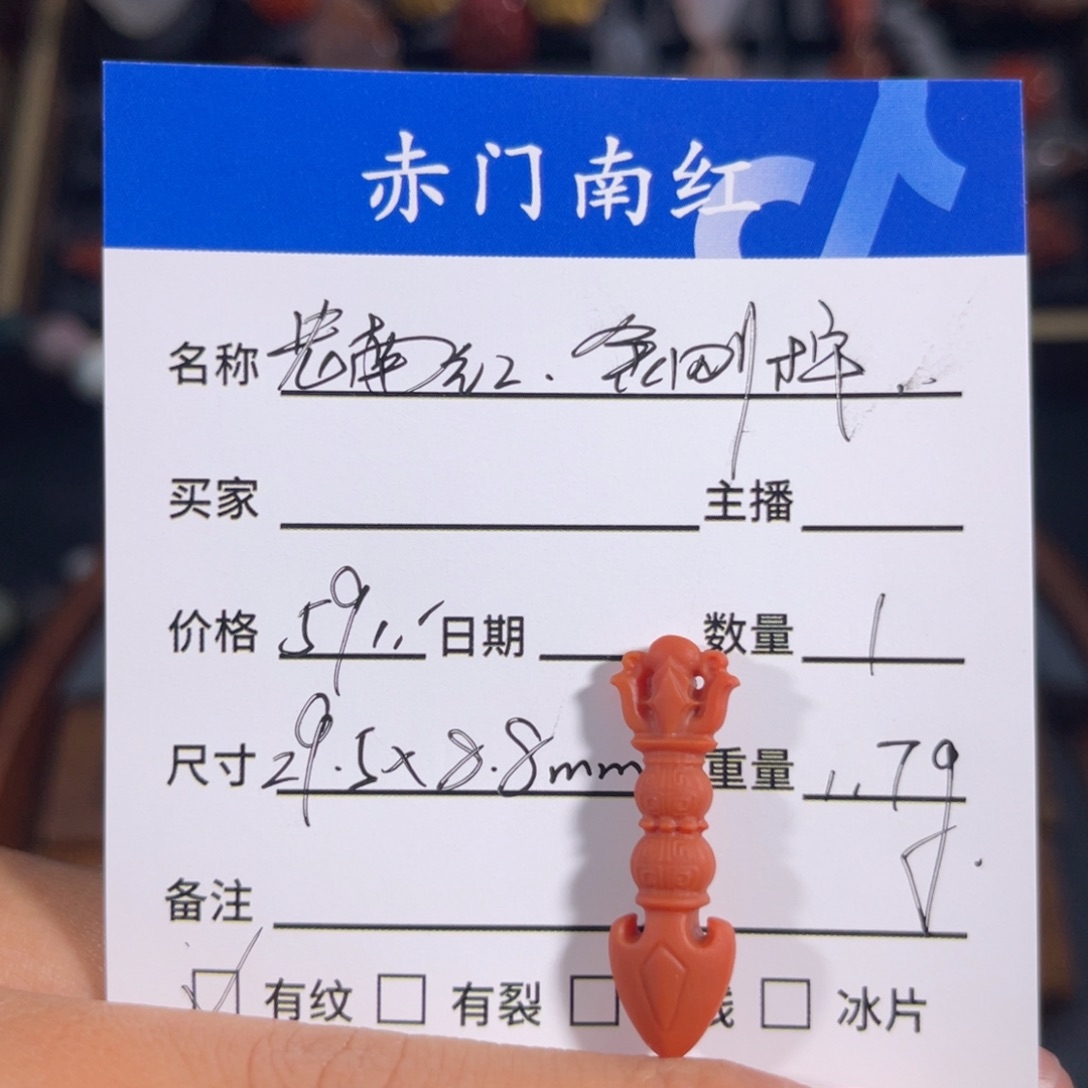 赤门南红
名称 老南红.金刚杵
买家 主播
价格 59 日期 数量 1
尺寸 29.5x8.8mm 重量 1.7g
备注
有纹 有裂 线 冰片